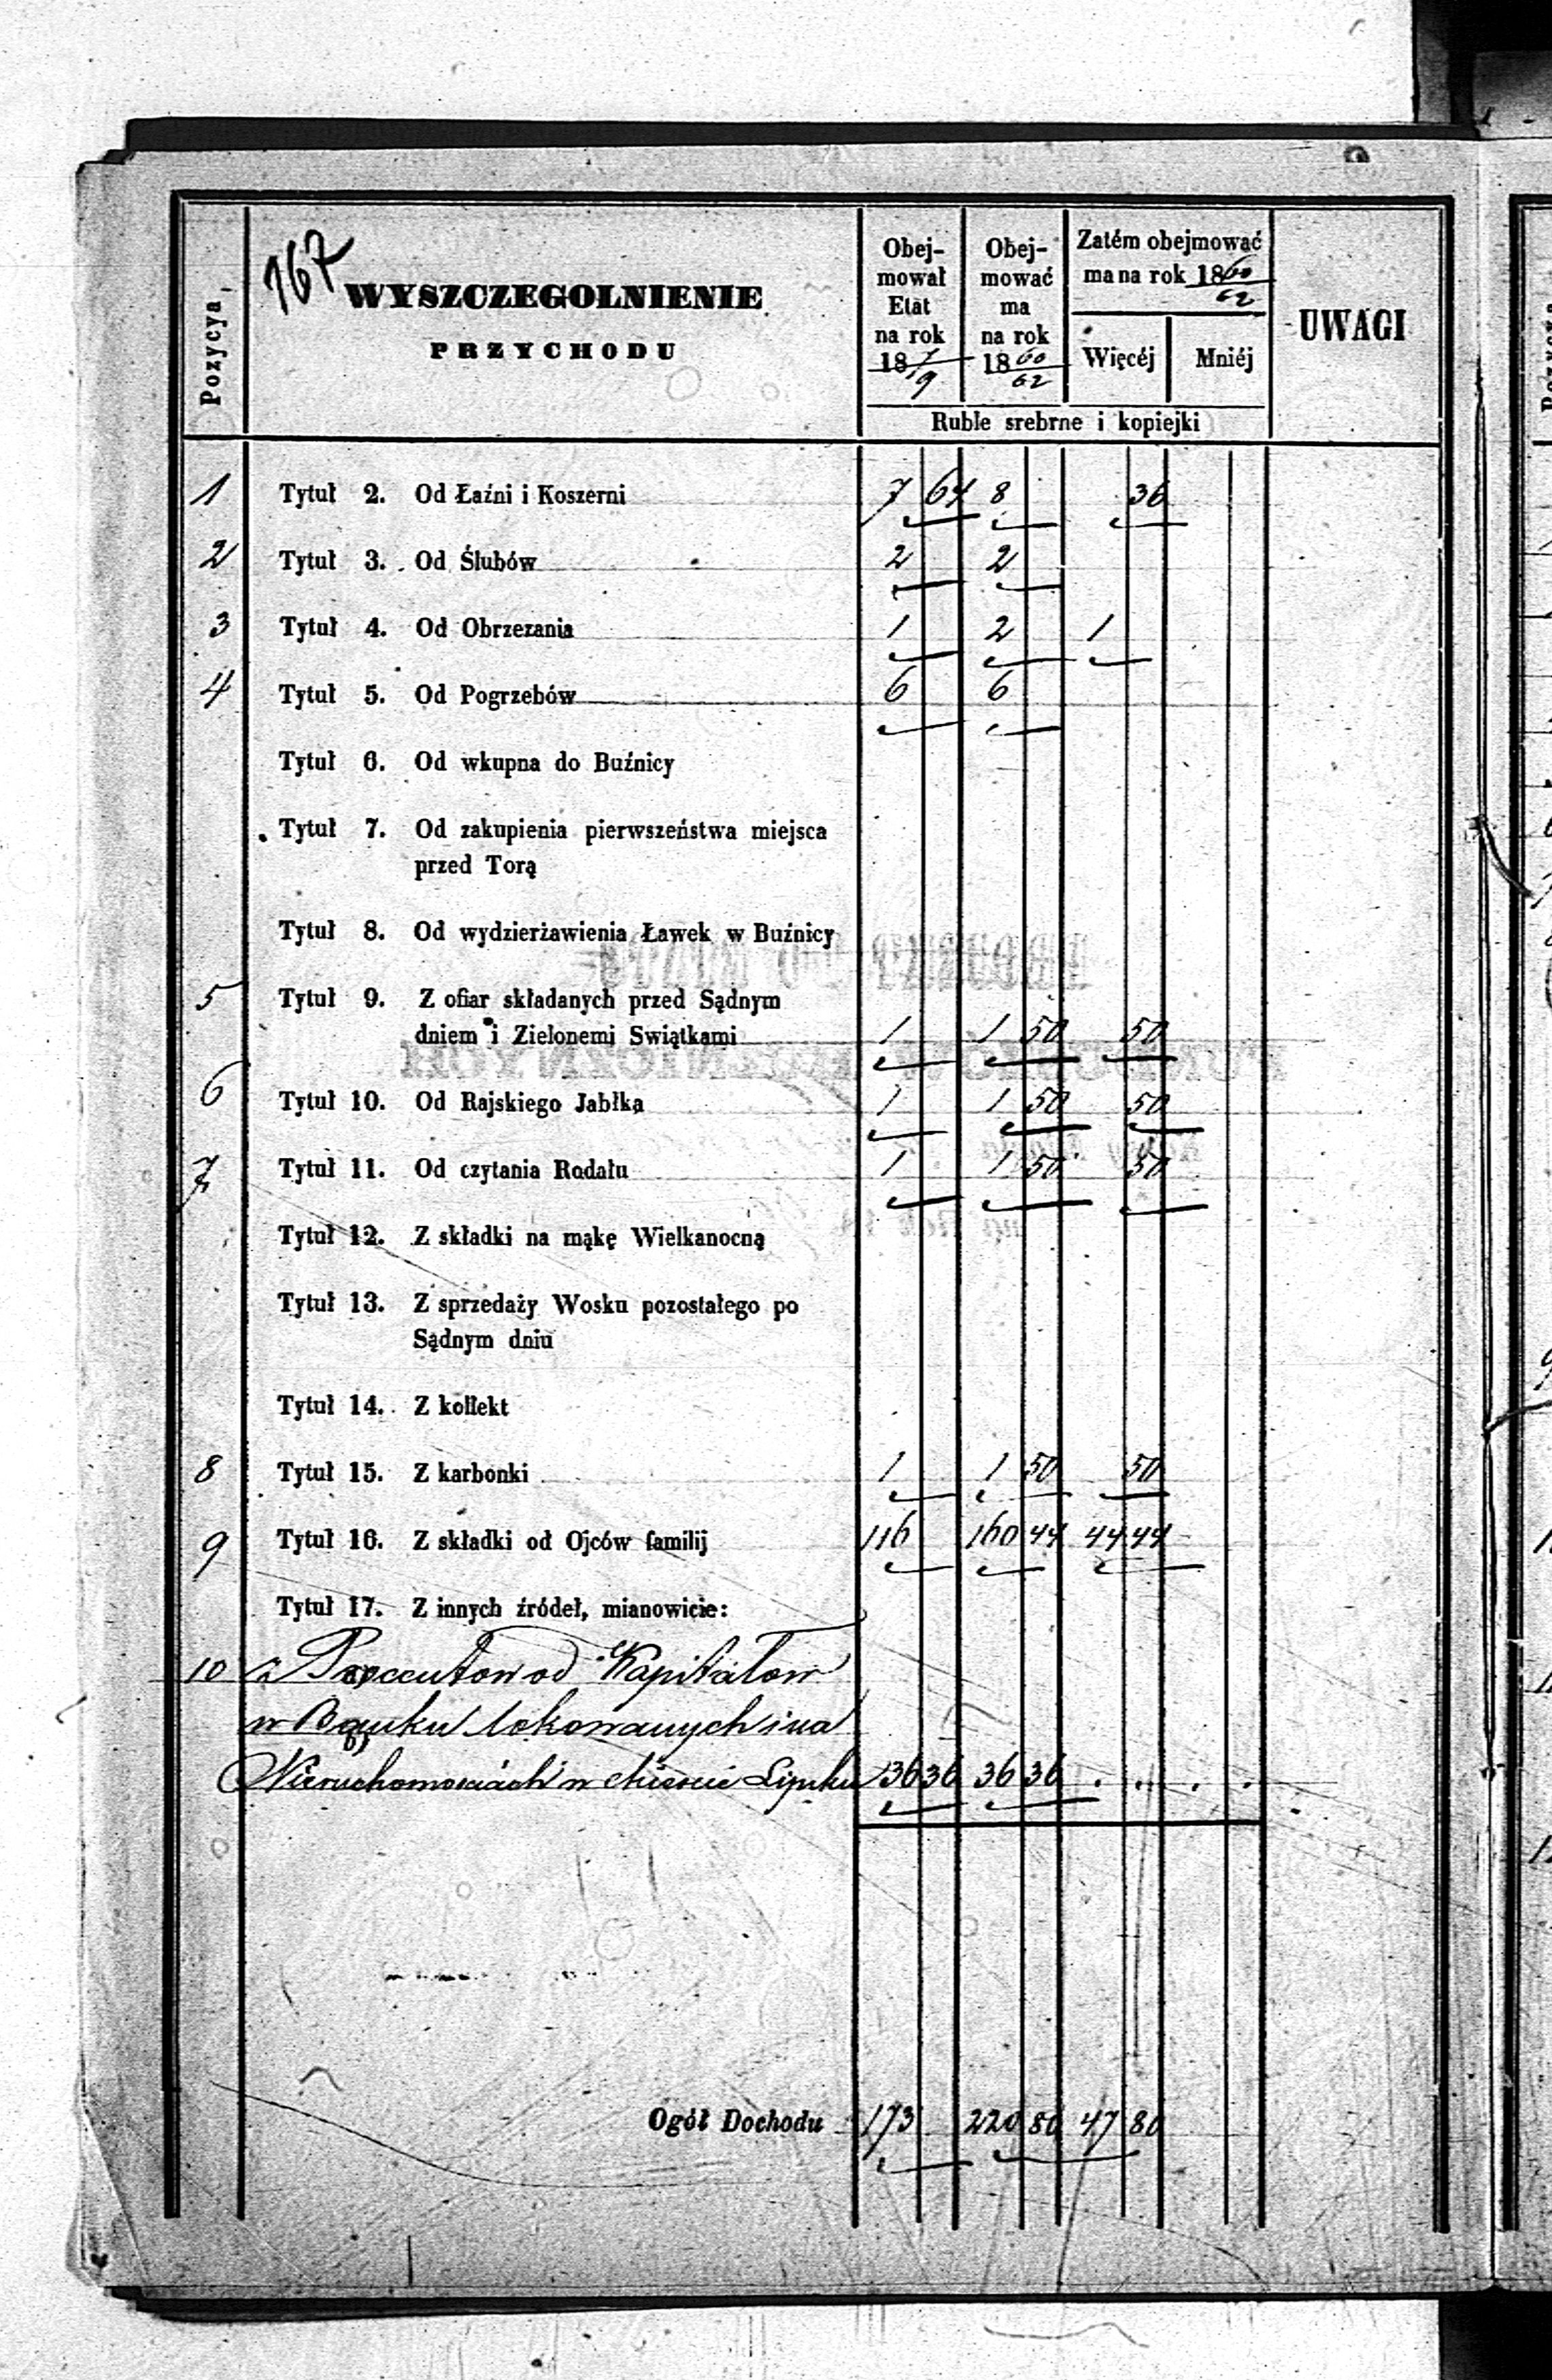 167
Pozycya,
WYSZCZEGOLNIENIE
PRZYCHODU
Obej-
mował
Etat
na rok
18 7/9
Obej-
mować
ma
na rok
18 60/62
Zatém obejmować
ma na rok 18 60/62
Więcéj
Mniéj
UWAGI
Ruble srebrne i kopiejki
1 Tytuł 2. Od Łaźni i Koszerni 7 64 8 36
2 Tytuł 3. Od Ślubów 2 2
3 Tytuł 4. Od Obrzezania 1 2 1
4 Tytuł 5. Od Pogrzebów 6 6
Tytuł 6. Od wkupna do Buźnicy
Tytuł 7. Od zakupienia pierwszeństwa miejsca
przed Torą
Tytuł 8. Od wydzierżawienia Ławek w Buźnicy
5 Tytuł 9. Z ofiar składanych przed Sądnym
dniem i Zielonemi Swiątkami 1 1 50 50
6 Tytuł 10. Od Rajskiego Jabłka 1 1 50 50
7 Tytuł 11. Od czytania Rodału 1 1 50 50
Tytuł 12. Z składki na mąkę Wielkanocną
Tytuł 13. Z sprzedaży Wosku pozostałego po
Sądnym dniu
Tytuł 14. Z kollekt
8 Tytuł 15. Z karbonki 1 1 50 50
9 Tytuł 16. Z składki od Ojców familij 116 160 44 44 44
Tytuł 17. Z innych źródeł, mianowicie:
10 z Procentow od Kapitałow
w Banku lokowanych i na
Nieruchomościach w Mieście Lipnku 36 36 36 36 . . . .
Ogół Dochodu 173 220 80 47 80